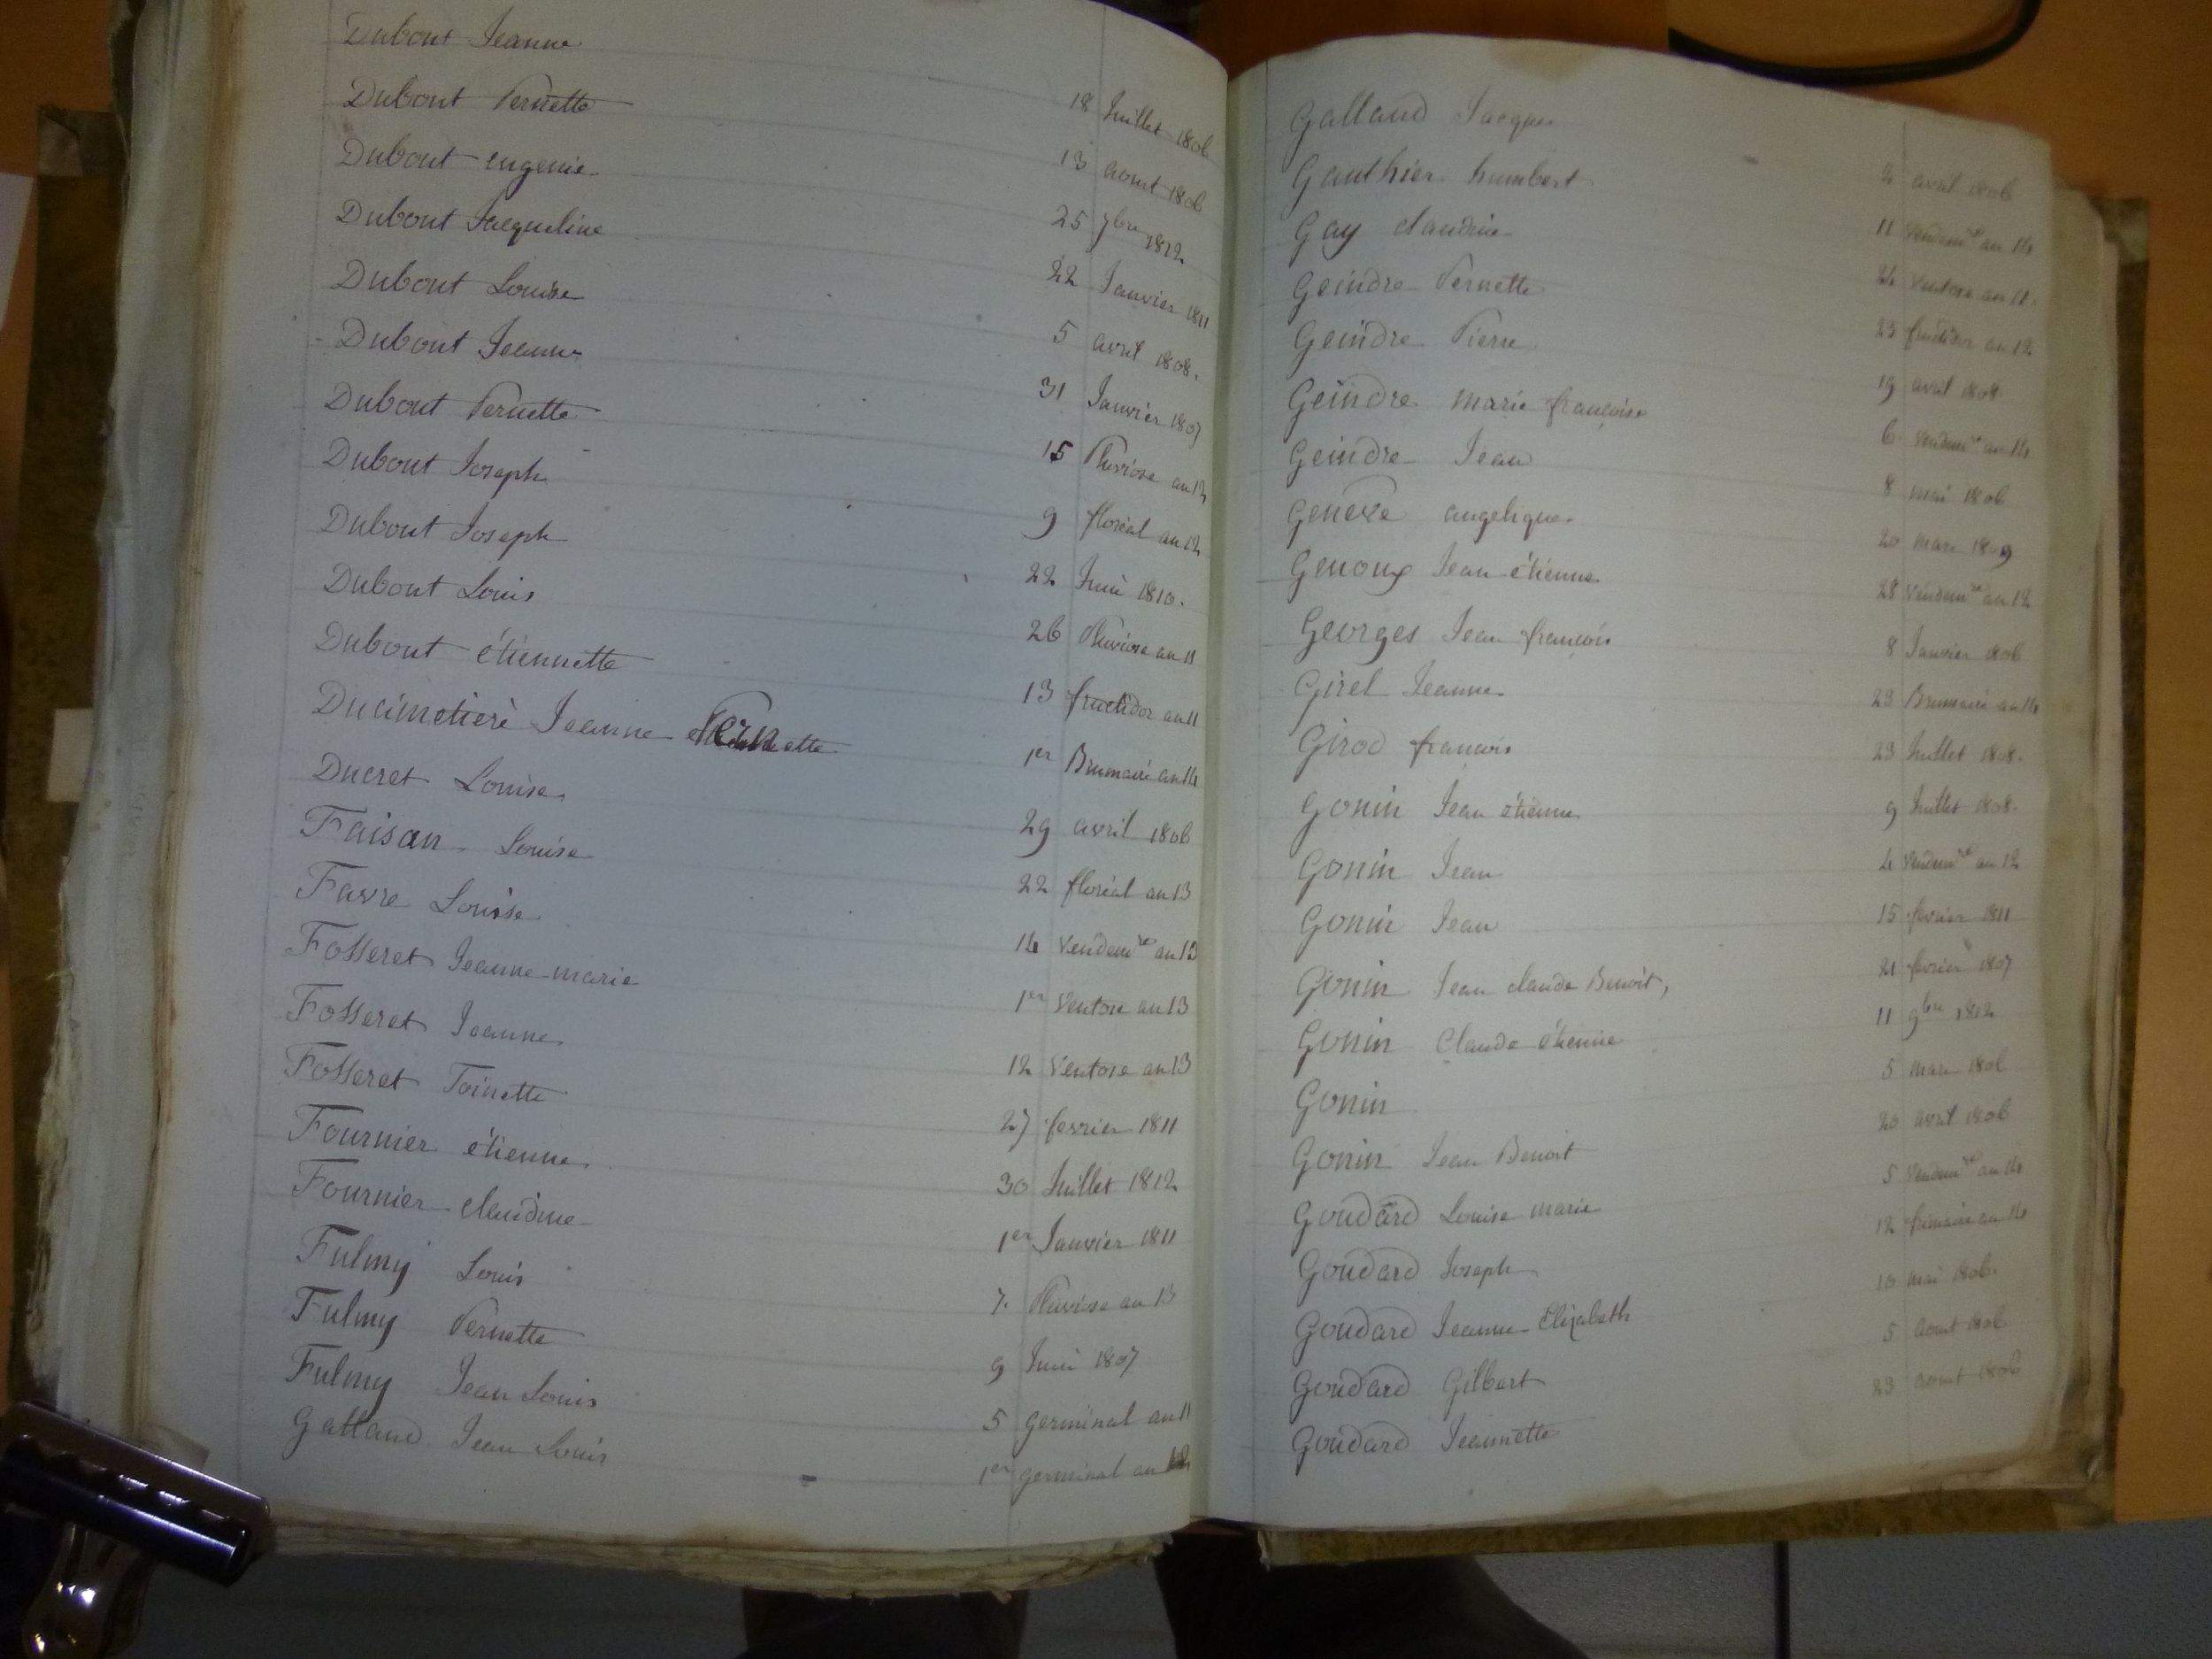 Dubout Jeanne 18 Juillet 1806
Dubout Pernette 13 aout 1806
Dubout eugenie 25 7bre 1812
Dubout Jacqueline 22 Janvier 1811
Dubout Louise 5 avril 1808.
Dubout Jeanne 31 Janvier 1807
Dubout Pernette 15 Pluviose an 12
Dubout Joseph 9 floréal an 12
Dubout Joseph 22 Juin 1810.
Dubout Louis 26 Pluviose an 11
Dubout étiennette 13 fructidor an 11
Ducimetierè Jeanne Pernette 1er Brumaire an 14
Ducret Louise 29 avril 1806
Faisan Louise 22 floréal an 13
Favre Louise 14 vendemre an 13
Fosseret Jeanne-marie 1er Ventose an 13
Fosseret Jeanne 12 Ventose an 13
Fosseret Toinette 27 fevrier 1811
Fournier étienne 30 Juillet 1812
Fournier claudine 1er Janvier 1811
Fulmy Louis 7. Pluviose an 13
Fulmy Pernette 9 Juin 1807
Fulmy Jean Louis 5 germinal an 11
Galland Jean Louis 1er germinal an 12
Galland Jacques 4 avril 1806
Gauthier humbert 11 Vendemre an 14
Gay claudine 24 Ventose an 11.
Geindre Pernette 23 fructidor an 12
Geindre Pierre 19 avril 1808
Geindre marie françoise 6 vendemre an 14
Geindre Jean 8 mai 1806
Geneve angelique 20 mars 1809
Genoux Jean étienne 28 Vendemre an 12
Georges Jean françois 8 Janvier 1806
Girel Jeanne 23 Brumaire an 14
Girod françois 23 Juillet 1808.
Gonin Jean étienne 9 Juillet 1808.
Gonin Jean 4 Vendemre an 12
Gonin Jean 15 fevrier 1811
Gonin Jean claude Benoit, 21 fevrier 1807
Gonin Claude étienne 11 9bre 1812
Gonin 5 mars 1806
Gonin Jean Benoit 20 avril 1806
Goudard Louise marie 5 Vendemre an 14
Goudard Joseph 12 frimaire an 14
Goudard Jeanne Elizabeth 10 mai 1806.
Goudard Gilbert 5 aout 1806
Goudard Jeannette 23 aout 1806